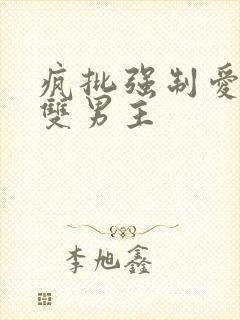 疯批强制爱
雙男主
李旭鑫